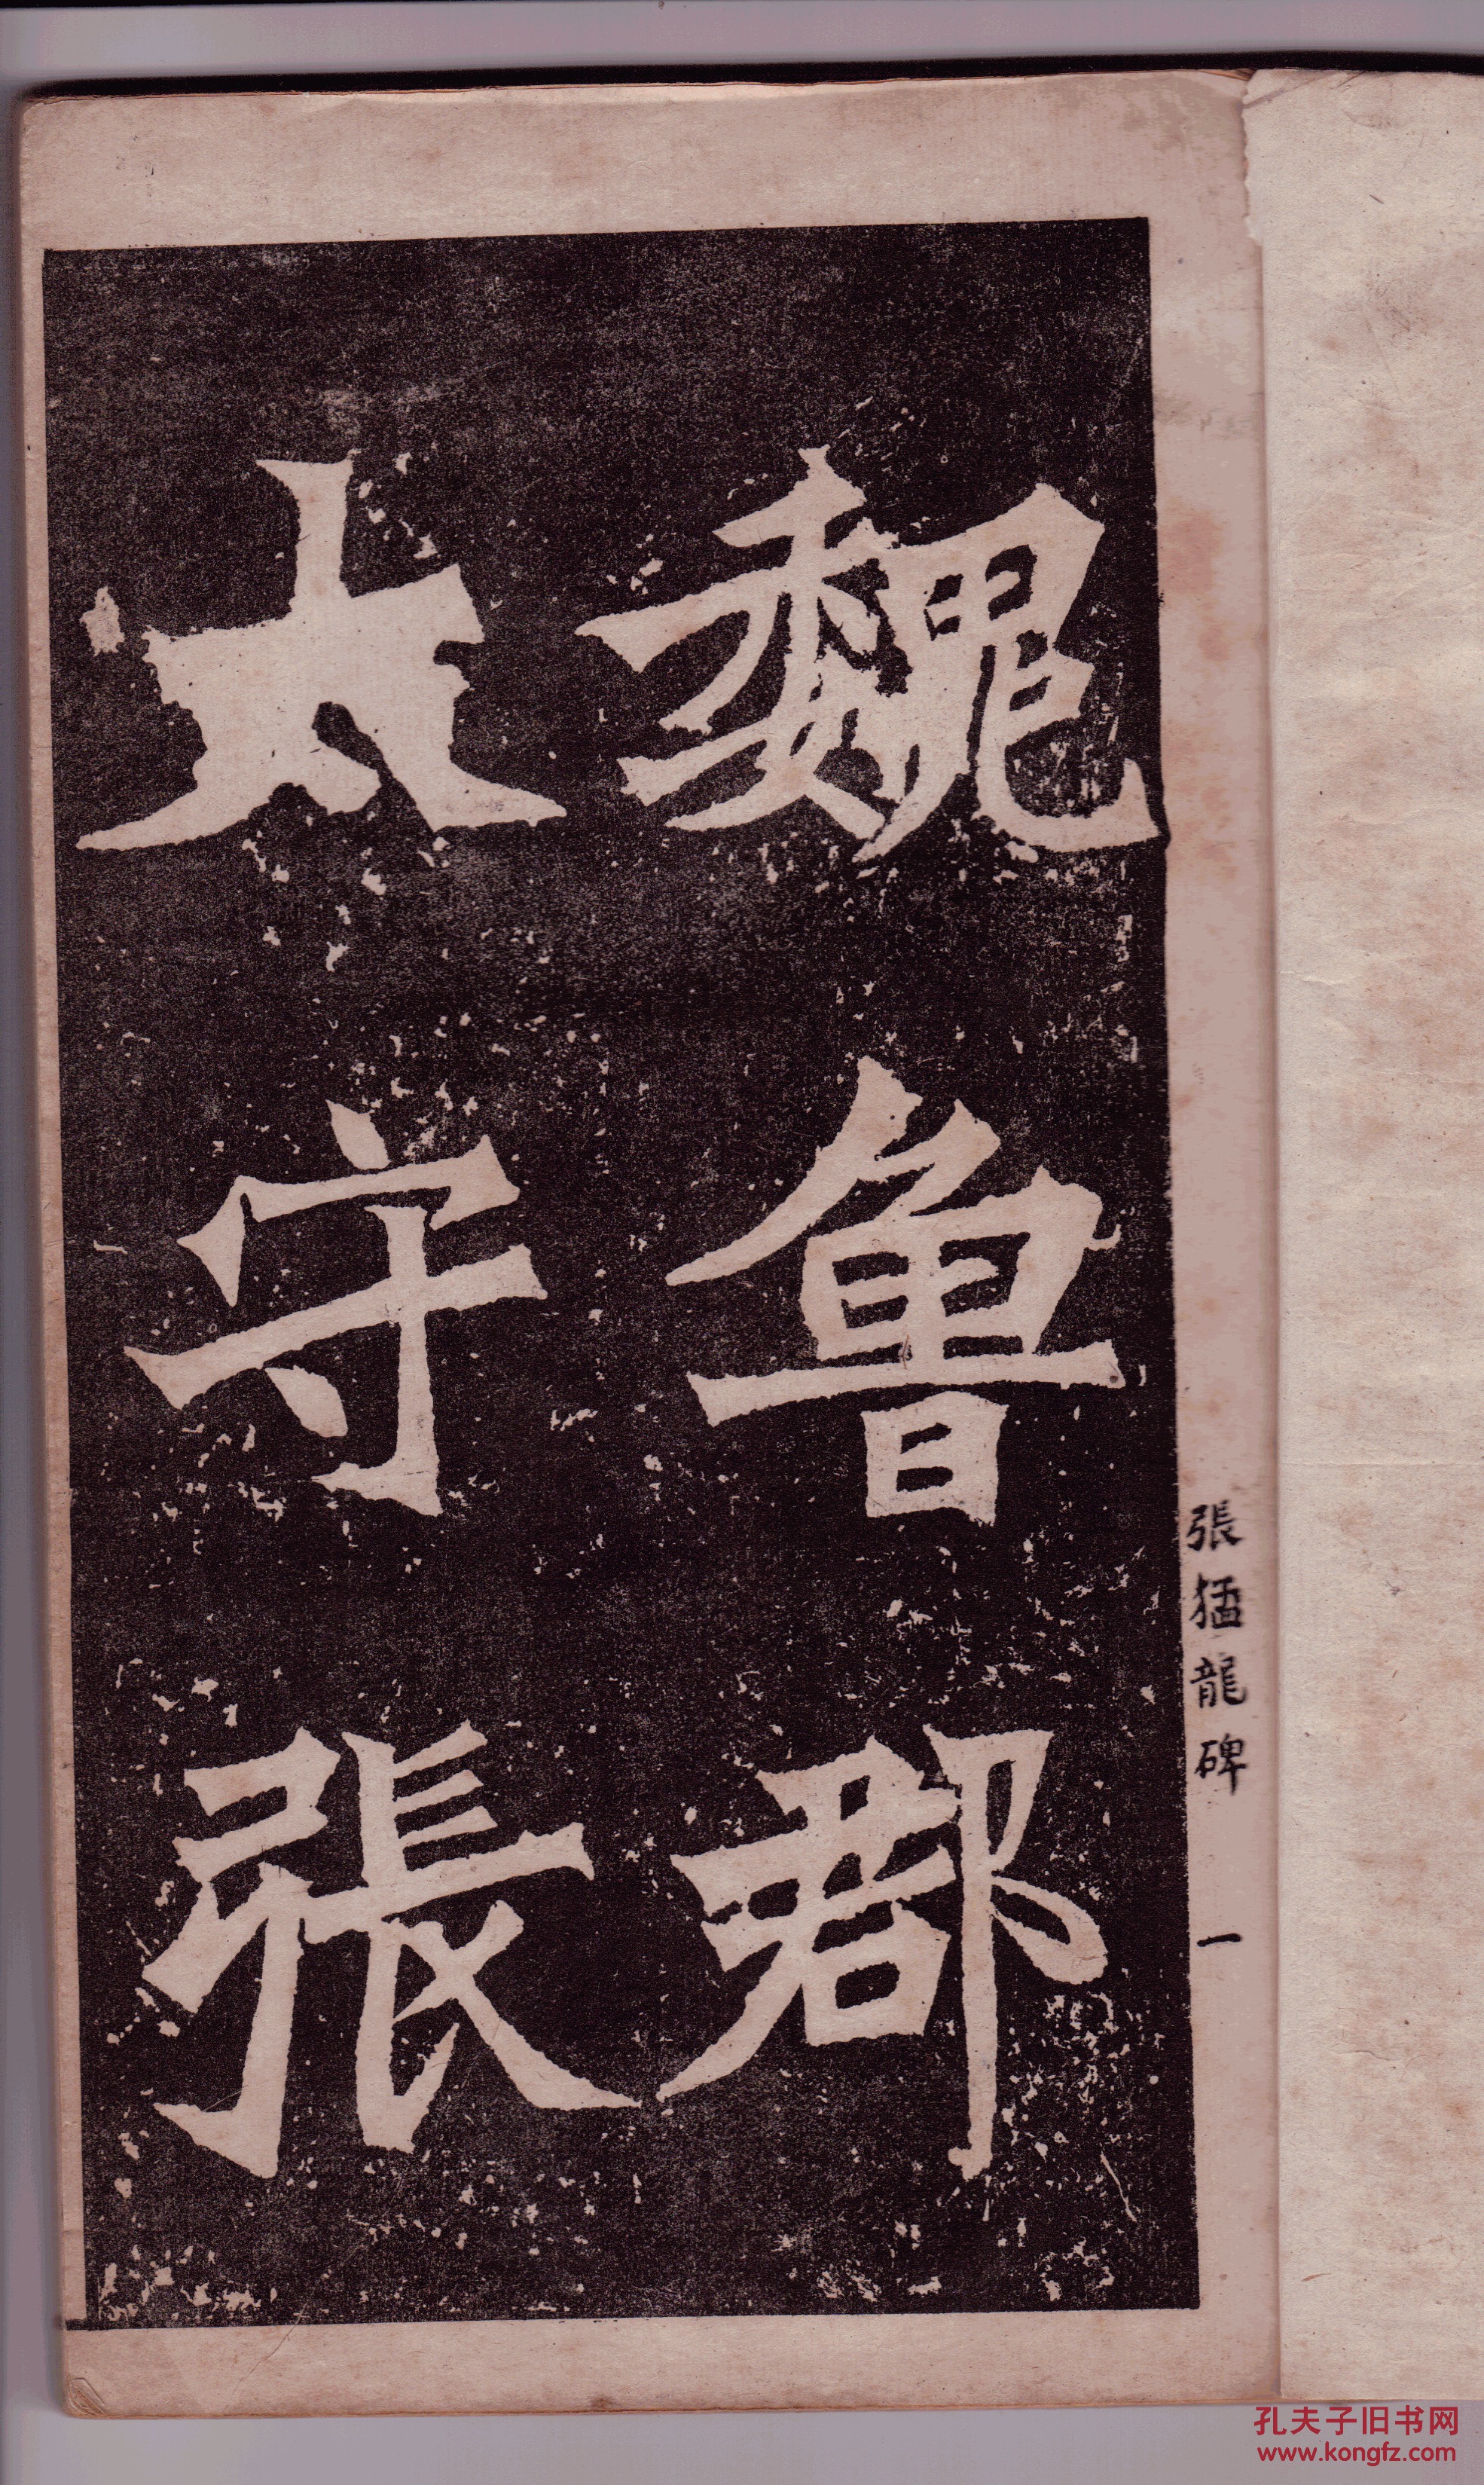 魏魯郡
太守張
張猛龍碑
一
孔夫子旧书网
www.kongfz.com